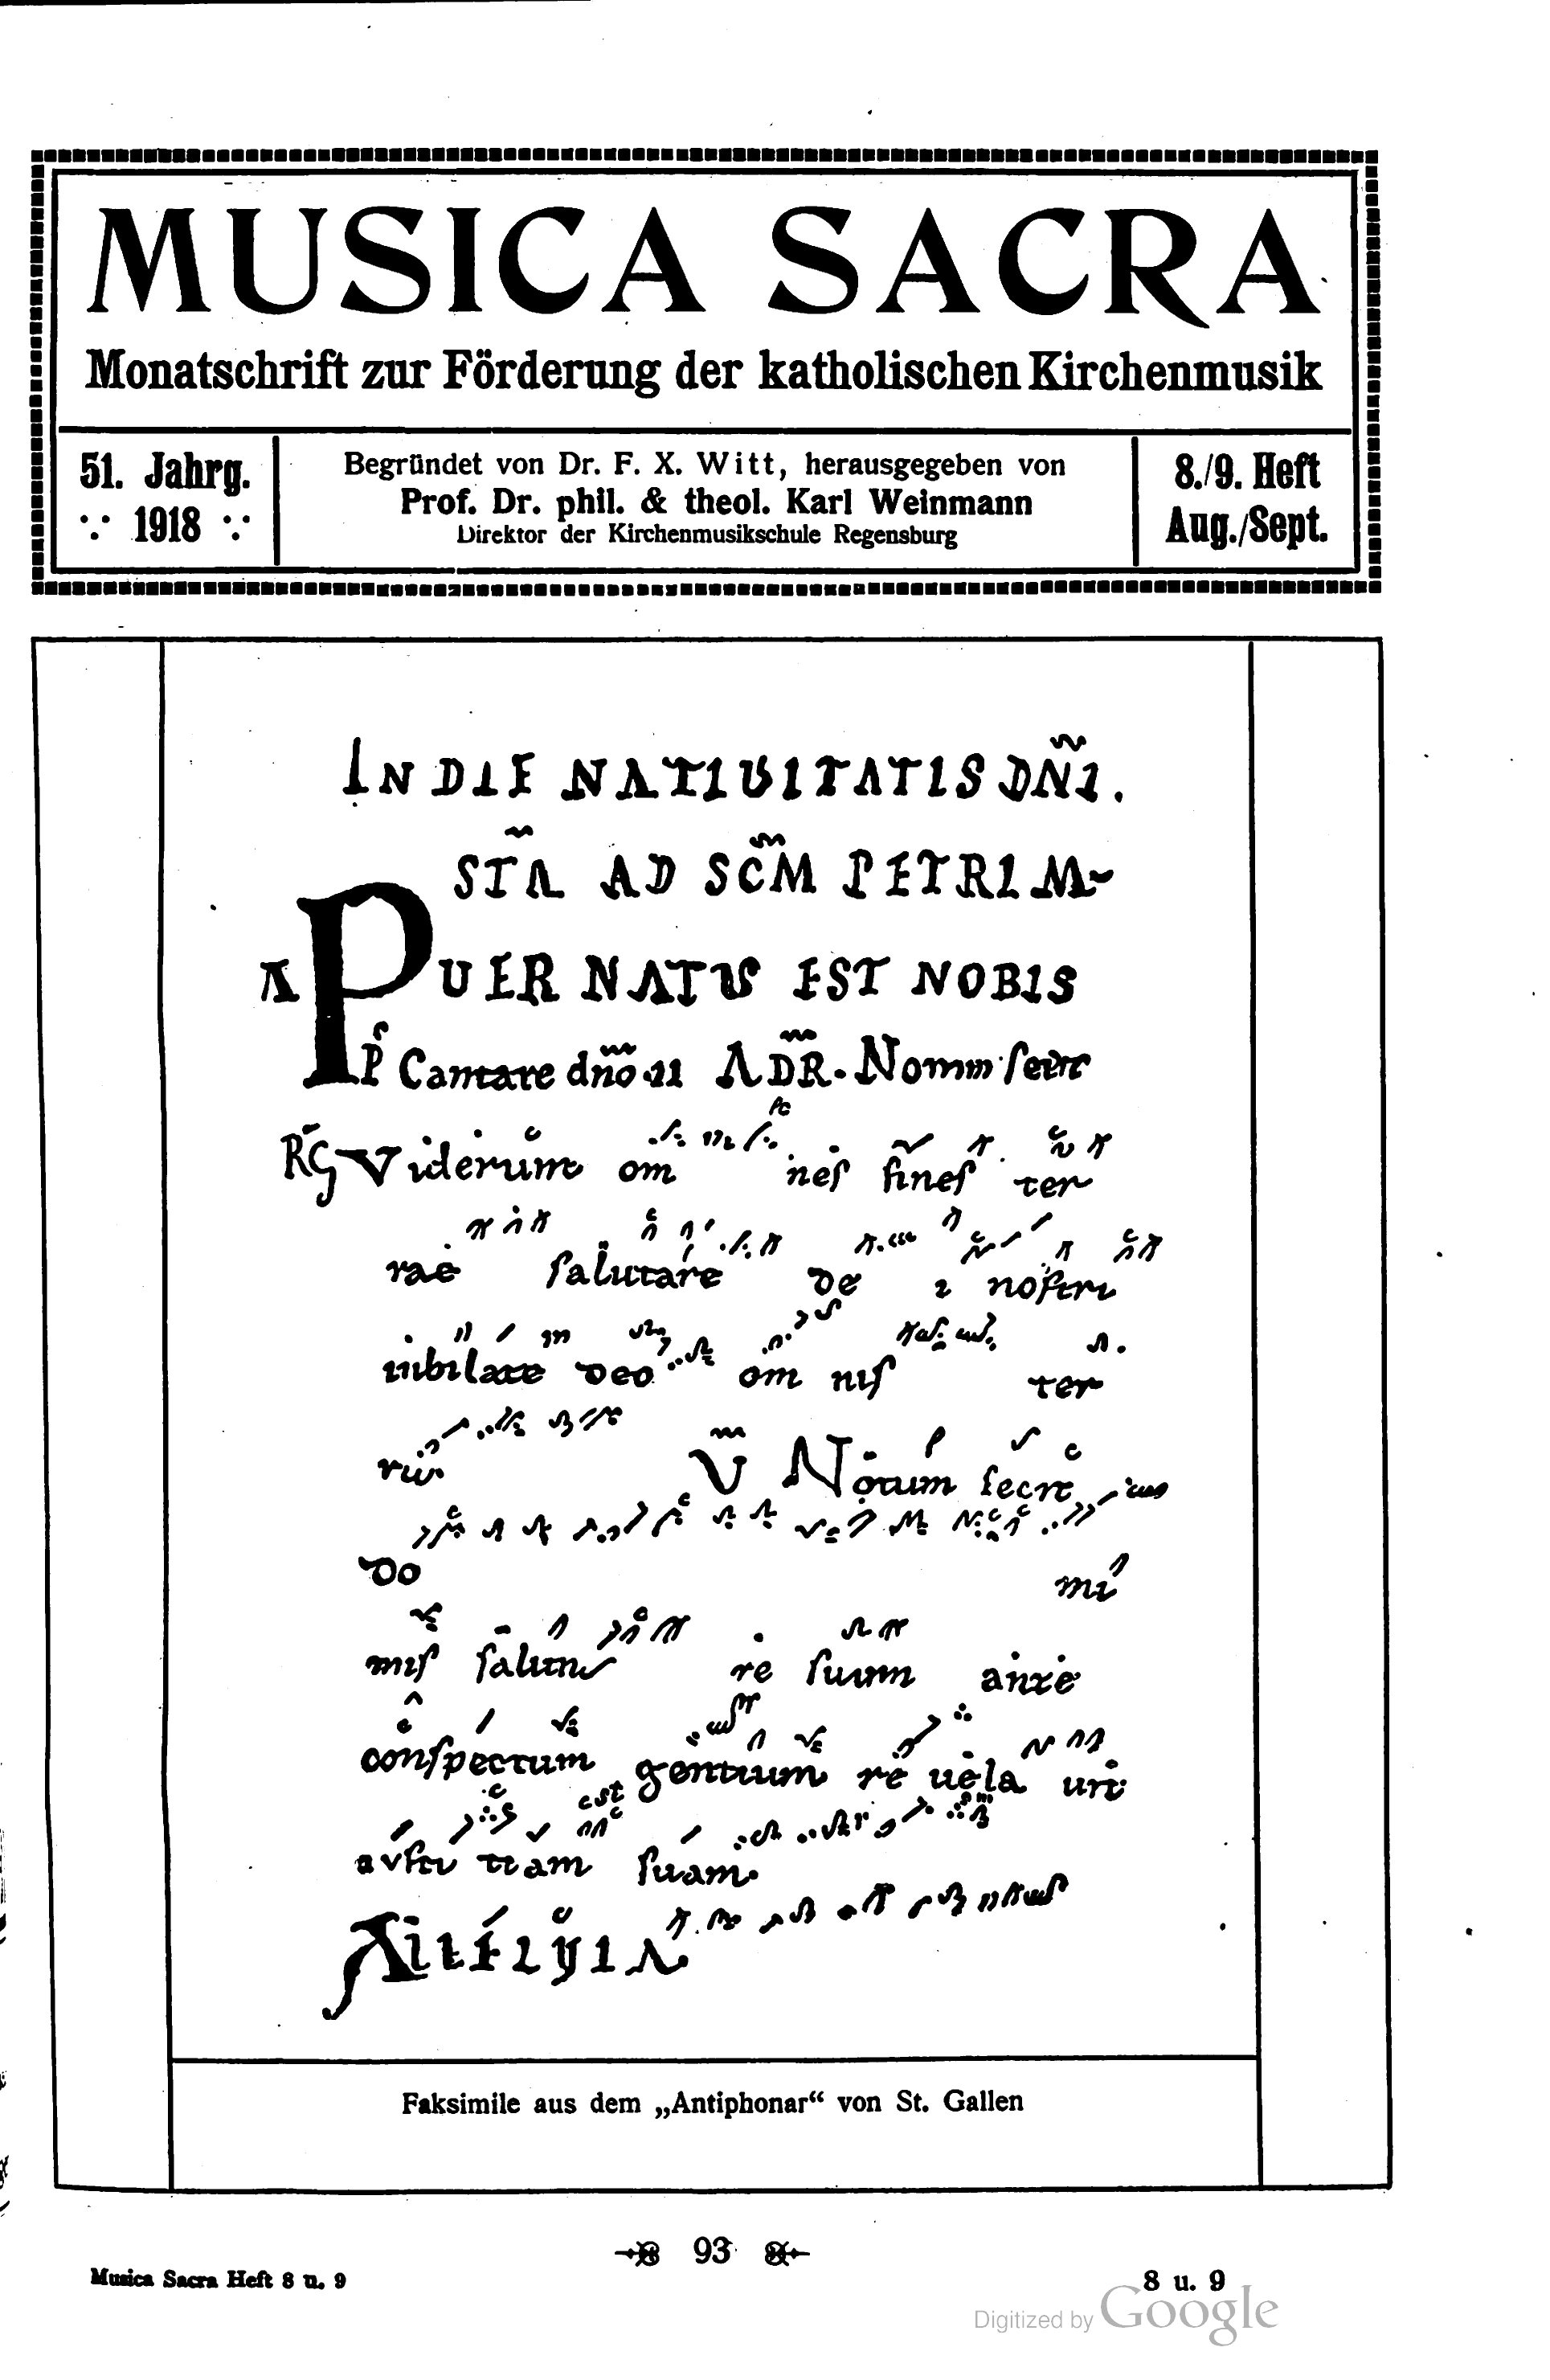 MUSICA SACRA
Monatschrift zur Förderung der katholischen Kirchenmusik
51. Jahrg.
1918
Begründet von Dr. F. X. Witt, herausgegeben von
Prof. Dr. phil. & theol. Karl Weinmann
Direktor der Kirchenmusikschule Regensburg
8./9. Heft
Aug./Sept.
IN DIE NATIUITATIS DN̄I.
STĀ AD SC̄M PETRIM
A PUER NATUS EST NOBIS
Cantare dn̄o
Viderunt om nes fines ter
rae salutare de i nostri
iubilate deo om nis ter
Notum fecit
do mi
nus salutare suum ante
conspectum gentium re uela uit
suam
Faksimile aus dem „Antiphonar“ von St. Gallen
93
Musica Sacra Heft 8 u. 9
8 u. 9
Digitized by Google